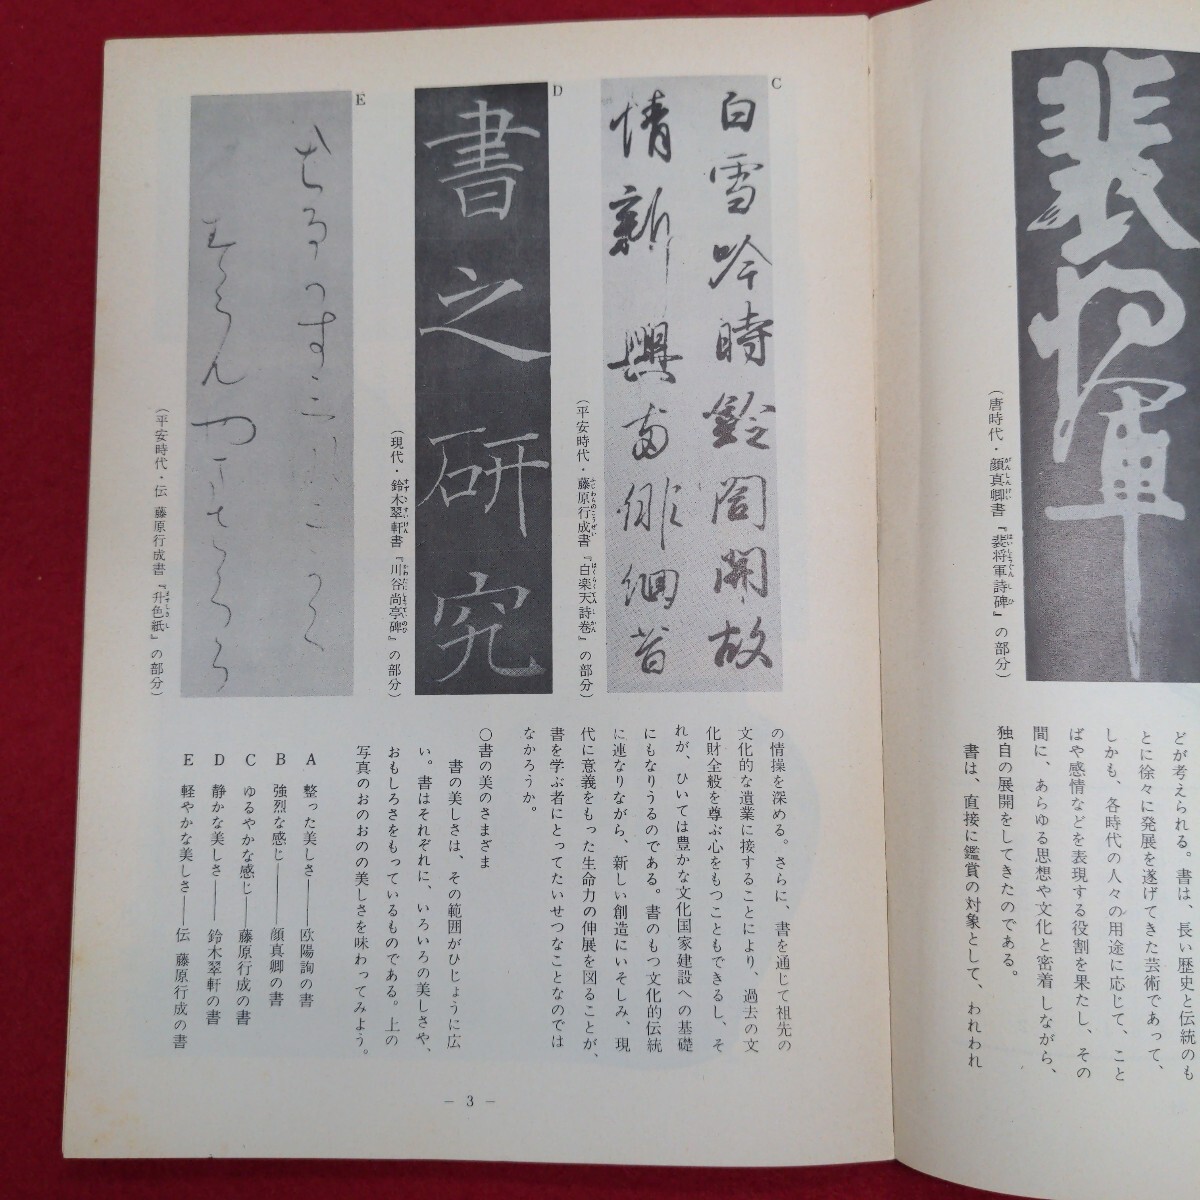 裴将軍
(唐時代・顔真卿書『裴将軍詩碑』の部分)
どが考えられる。書は、長い歴史と伝統のも
とに徐々に発展を遂げてきた芸術であって、
しかも、各時代の人々の用途に応じて、こと
ばや感情などを表現する役割を果たし、その
間に、あらゆる思想や文化と密着しながら、
独自の展開をしてきたのである。
書は、直接に鑑賞の対象として、われわれ
C
白雪吟時鈴閣開故
情新興両徘徊昔
(平安時代・藤原行成書『白楽天詩巻』の部分)
D
書之研究
(現代・鈴木翠軒書『川谷尚亭碑』の部分)
E
(平安時代・伝 藤原行成書『升色紙』の部分)
の情操を深める。さらに、書を通じて祖先の
文化的な遺業に接することにより、過去の文
化財全般を尊ぶ心をもつこともできるし、そ
れが、ひいては豊かな文化国家建設への基礎
にもなりうるのである。書のもつ文化的伝統
に連なりながら、新しい創造にいそしみ、現
代に意義をもった生命力の伸展を図ることが、
書を学ぶ者にとってたいせつなことなのでは
なかろうか。
○書の美のさまざま
書の美しさは、その範囲がひじょうに広
い。書はそれぞれに、いろいろの美しさや、
おもしろさをもっているものである。上の
写真のおのおのの美しさを味わってみよう。
A 整った美しさ――欧陽詢の書
B 強烈な感じ――顔真卿の書
C ゆるやかな感じ――藤原行成の書
D 静かな美しさ――鈴木翠軒の書
E 軽やかな美しさ――伝 藤原行成の書
― 3 ―